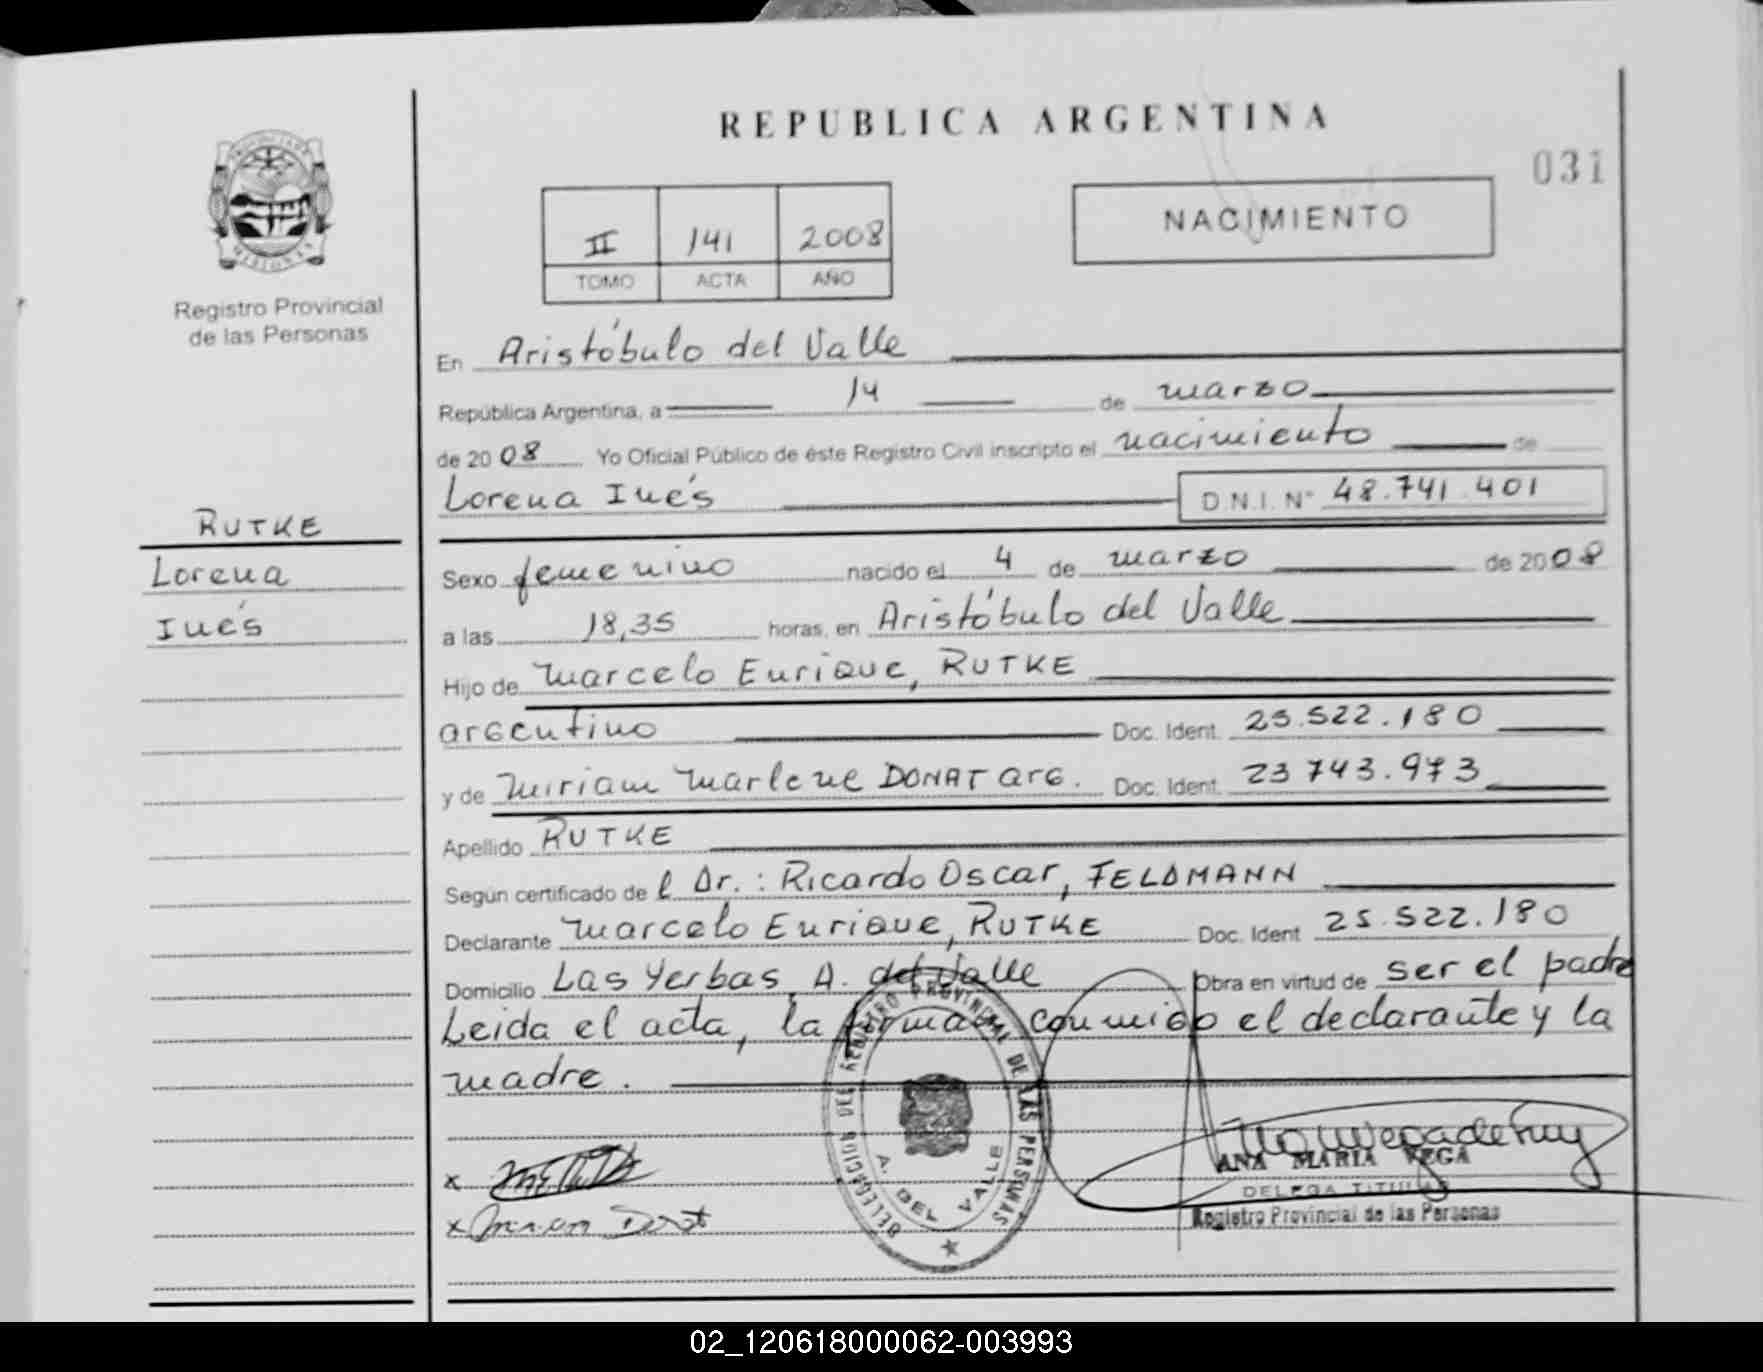 REPUBLICA ARGENTINA
031
NACIMIENTO
II 141 2008
TOMO ACTA AÑO
PROVINCIA DE MISIONES
Registro Provincial
de las Personas
RUTKE
Lorena
Inés
En Aristóbulo del Valle
República Argentina, a 14 de marzo
de 2008 Yo Oficial Público de éste Registro Civil inscripto el nacimiento de
Lorena Inés D.N.I. Nº 48.741.401
Sexo femenino nacido el 4 de marzo de 2008
a las 18,35 horas, en Aristóbulo del Valle
Hijo de Marcelo Enrique, RUTKE
argentino Doc. Ident. 25.522.180
y de Miriam Marlene DONAT arg. Doc. Ident. 23 743.973
Apellido RUTKE
Según certificado de l Dr.: Ricardo Oscar, FELDMANN
Declarante Marcelo Enrique, RUTKE Doc. Ident 25.522.180
Domicilio Las Yerbas, A. del Valle Obra en virtud de ser el padre
Leida el acta, la firman conmigo el declarante y la
madre.
DELEGACION DEL REGISTRO PROVINCIAL DE LAS PERSONAS
A. DEL VALLE
x
x Miriam Donat
ANA MARIA VEGA
DELEGA TITULAR
Registro Provincial de las Personas
02_120618000062-003993